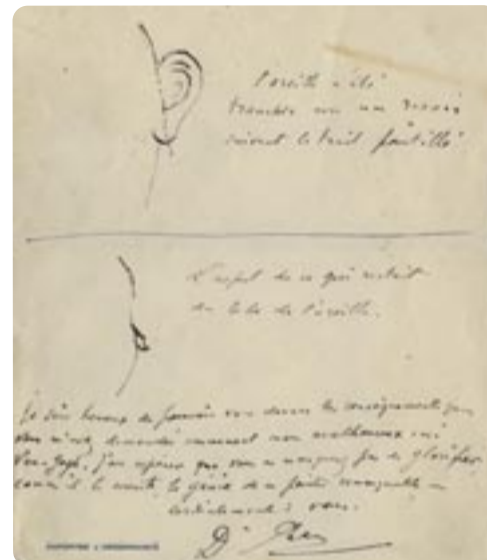 L'oreille a été
tranchée avec un rasoir
suivant le trait pointillé
L'aspect de ce qui restait
du lobe de l'oreille.
Je suis heureux de pouvoir vous donner les renseignements que
vous m'avez demandés concernant mon malheureux ami
Van Gogh. J'ose espérer que vous ne manquerez pas de glorifier
comme il le mérite, le génie de ce peintre remarquable
cordialement à vous.
Dr Rey